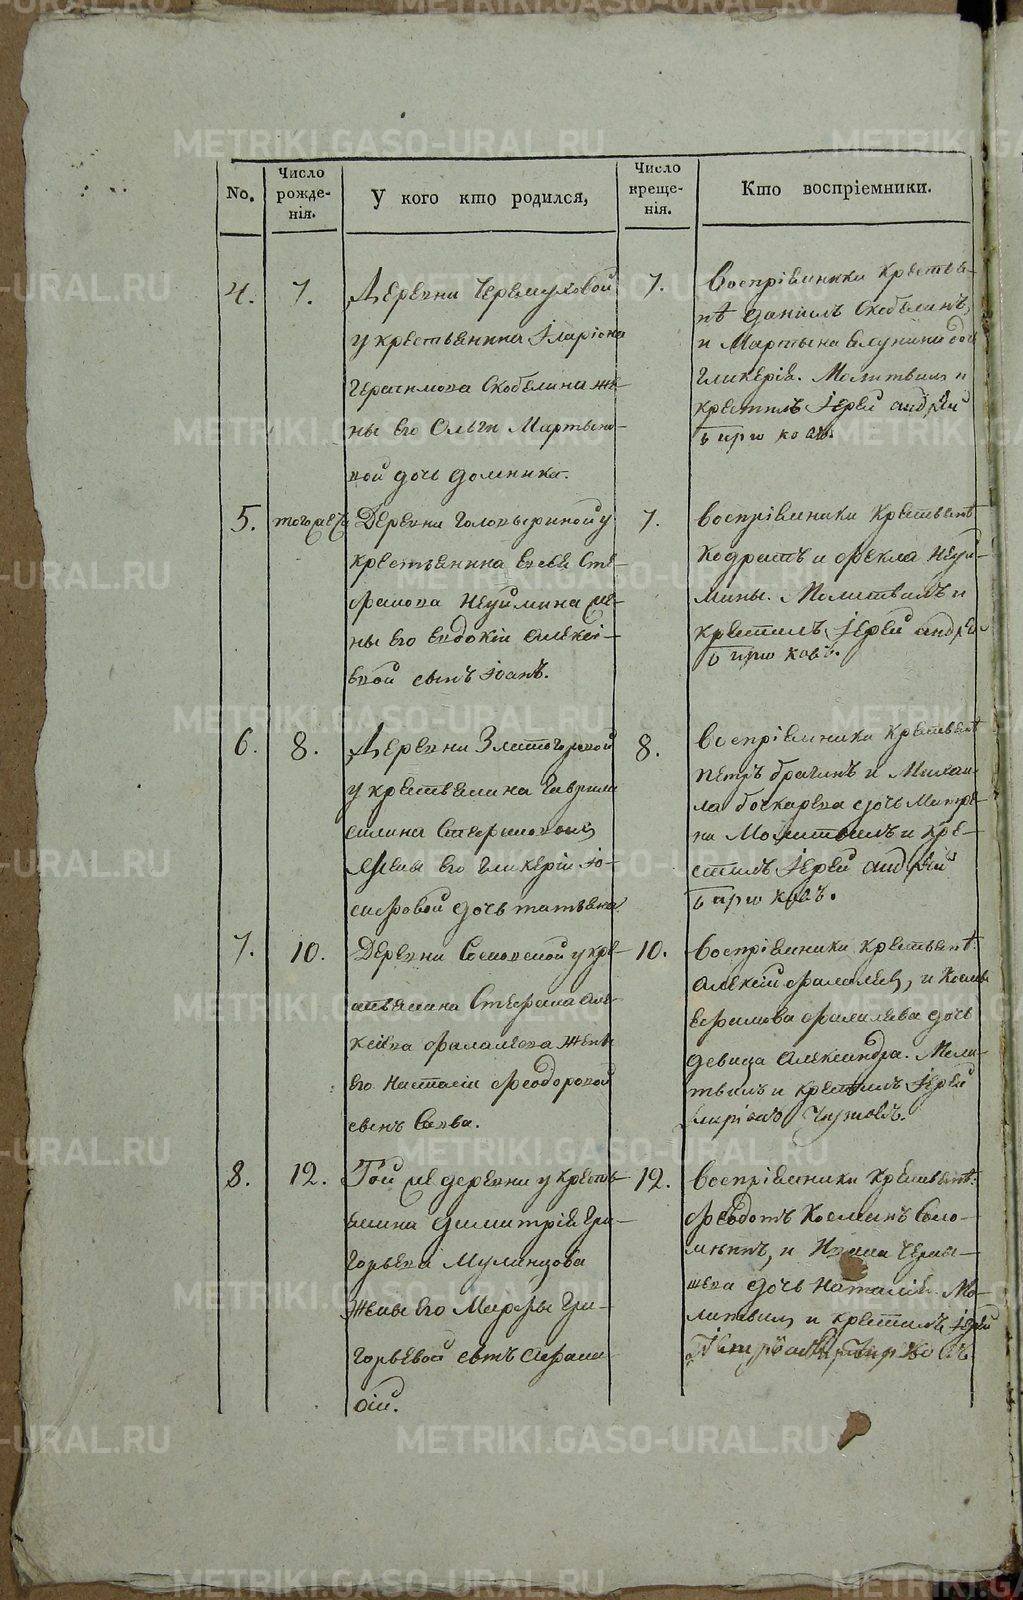 No.
Число рожде-нія.
У кого кто родился,
Число креще-нія.
Кто воспріемники.
4.
7.
Деревни Черемуховой
у крестьянина Іларіона
Герасимова Скобелина же-
ны его Ольги Мартыно-
вой дочь Домника.
7.
Воспріемники крестья-
нѣ Даніилъ Скобелинъ,
и Мартына дочь
Гликерія. Молитвилъ и
крестилъ Іерей Андрей
5.
тогоже
Деревни Головыриной у
крестьянина Сте-
фанова Неуймина же-
ны его Евдокіи Алексі-
евой сынъ Іоанъ.
7.
Воспріемники крестьянѣ
Кодратъ и Фекла Неуй-
мины. Молитвилъ и
крестилъ Іерей Андрей
6.
8.
Деревни Златогоровой
у крестьянина Гаврила
Силина
жены его Гликеріи Іо-
сифовой дочь татьяна
8.
Воспріемники крестьянѣ
петръ брагинъ и Михаи-
ла бочкарева дочь Матре-
на Молитвилъ и кре-
стилъ Іерей Андрей
7.
10.
Деревни Сосновской у кре-
стьянина Стефана Але-
ксіева Фалалеева жены
его Настасіи Феодоровой
сынъ Савва.
10.
Воспріемники крестьянѣ
Алексій Фалалеевъ, и Козмы
Ефимова Фалалеева дочь
девица Александра. Моли-
твилъ и крестилъ Іерей
8.
12.
Той же деревни у кресть-
янина Димитрія Гри-
горьева Муланцова
жены его Марфы Гри-
горьевой сынъ Афана-
сій.
12.
Воспріемники крестьянѣ
Феодотъ Козминъ Соло-
и Ивана Черны-
шева дочь Наталія. Мо-
литвилъ и крестилъ Іерей
METRIKI.GASO-URAL.RU